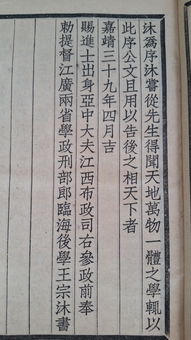 沐爲序沐嘗從先生得聞天地萬物一體之學輒以
此序公文且用以告後之相天下者
嘉靖三十九年四月吉
賜進士出身亞中大夫江西布政司右參政前奉
勑提督江廣兩省學政刑部郎臨海後學王宗沐書